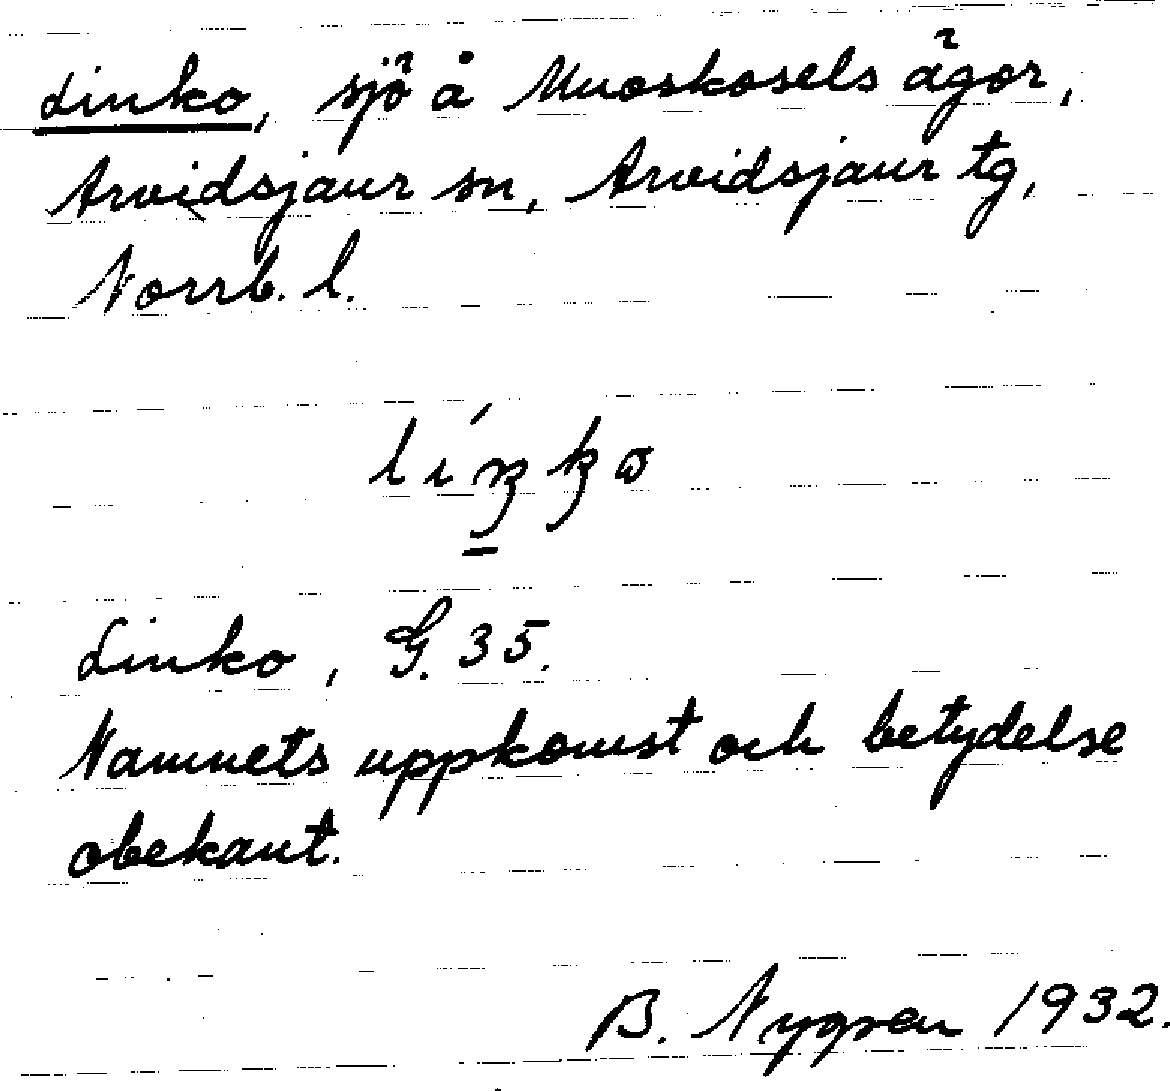 Linko, sjö å Muoskosels ägor,
Arvidsjaur sn, Arvidsjaur tg,
Norrb. l.
Linko, G. 35.
Namnets uppkomst och betydelse
obekant.
B. Nygren 1932.